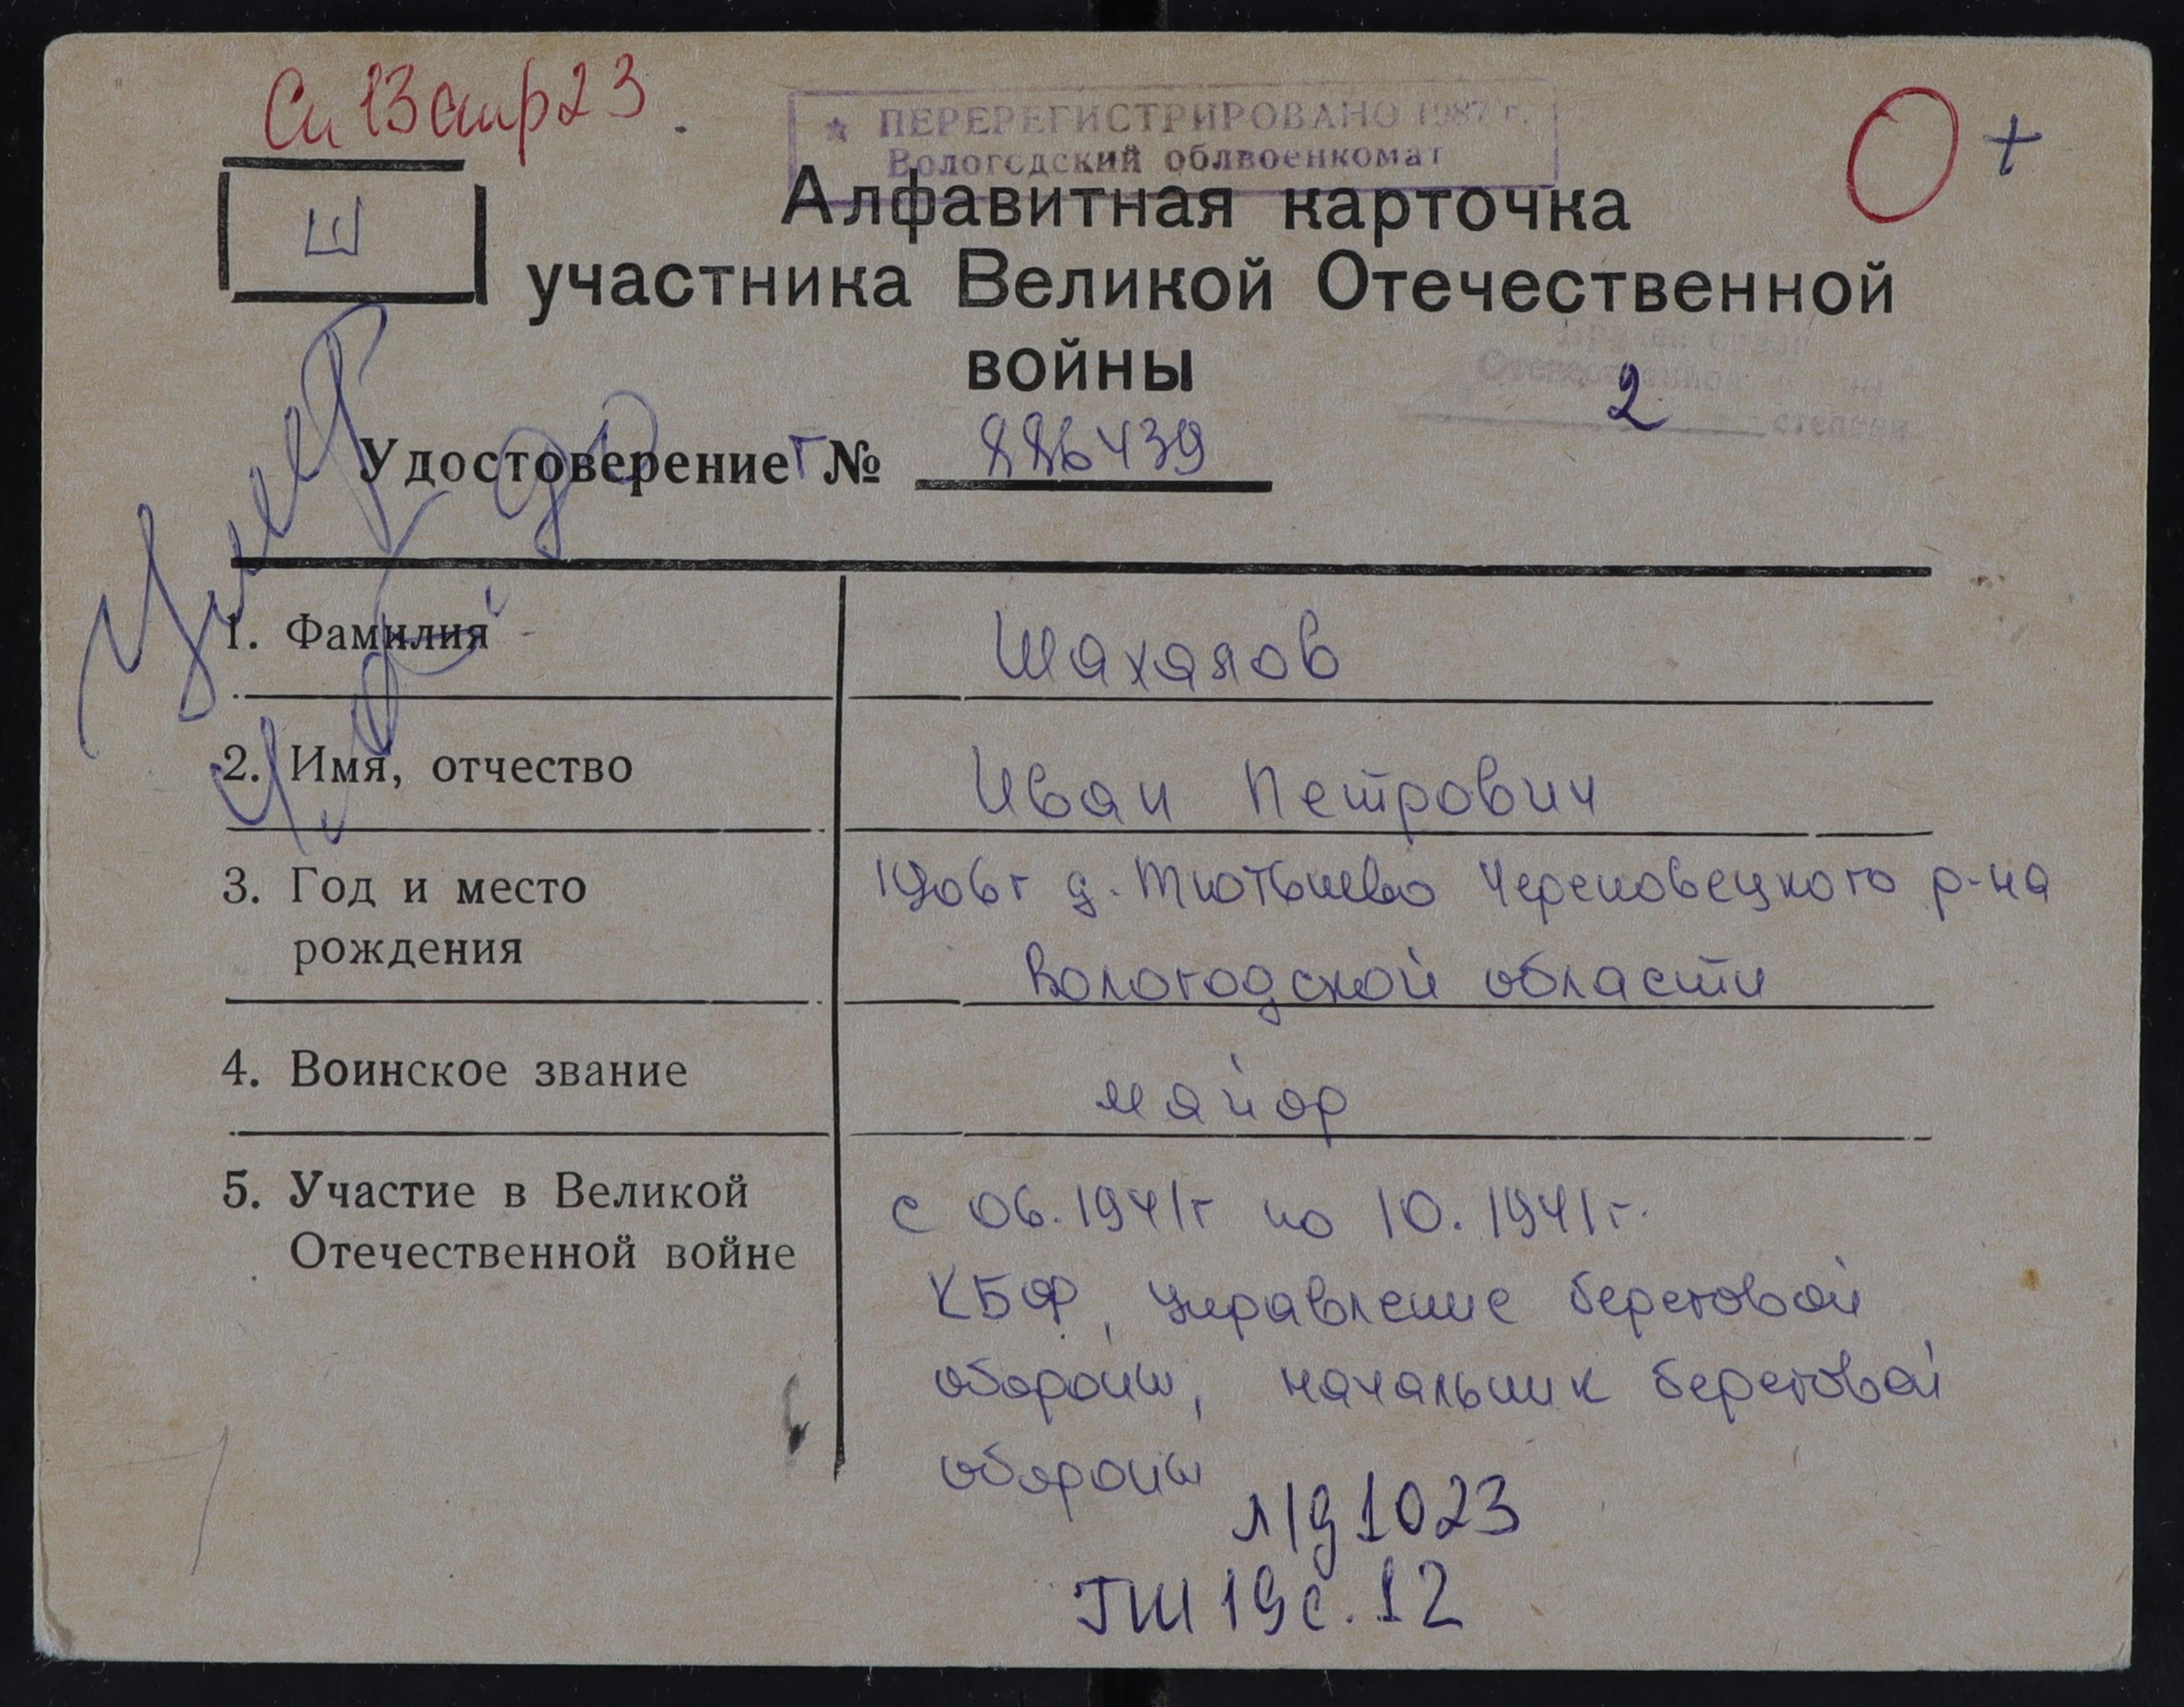 Сп 13 стр 23.
★ ПЕРЕРЕГИСТРИРОВАНО 1987 г.
Вологодский облвоенкомат
О +
Ш
Алфавитная карточка
участника Великой Отечественной
войны
Отечественной
2
степени
Удостоверение Г № 886439
1. Фамилия Шахалов
2. Имя, отчество Иван Петрович
3. Год и место 1906г д. Череповецкого р-на
рождения Вологодской области
4. Воинское звание майор
5. Участие в Великой с 06.1941г по 10.1941г.
Отечественной войне
КБФ, управление береговой
обороны, начальник береговой
обороны
л/д 1023
ГШ 19 с. 12